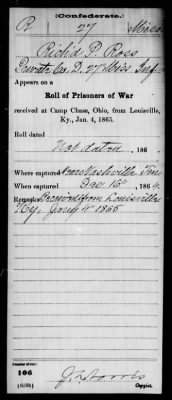 (Confederate.)
R 27 Miss
Richd P. Ross
Private Co. D. 27 Miss Inf.
Appears on a
Roll of Prisoners of War
received at Camp Chase, Ohio, from Louisville,
Ky., Jan. 4, 1865.
Roll dated
Not dated, 186 .
Where captured Near Nashville Ten
When captured Dec 16, 1864.
Remarks: Received from Louisville
Ky, Jany 4" 1865
Number of roll:
106
(639b) Copyist.